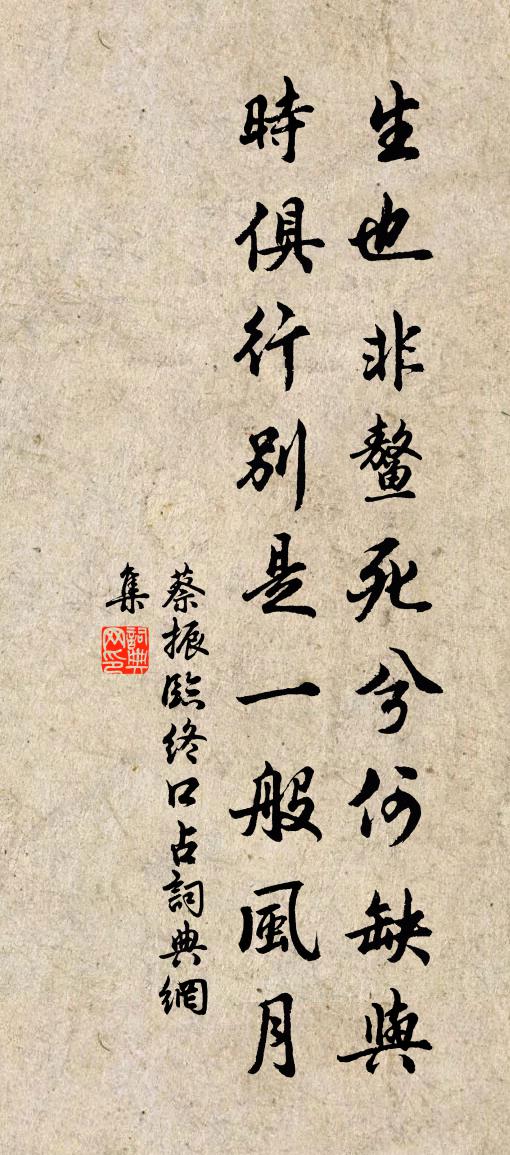 生也非鼇死兮何缺與
時俱行別是一般風月
蔡振臨終口占詞典網
集
詞典
网印